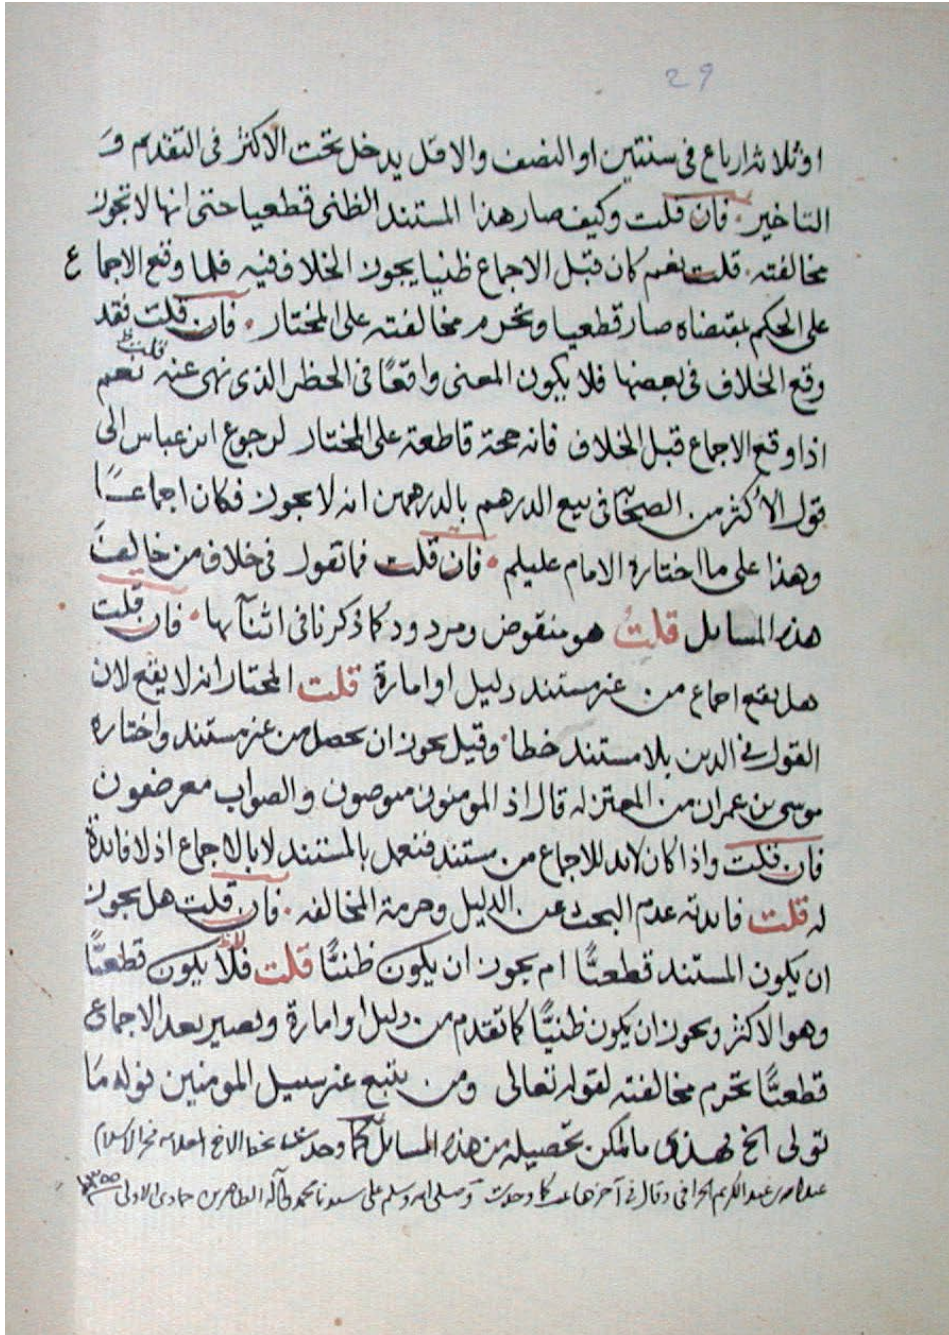 29
او ثلاثة ارباع في سنتين او النصف والاقل يدخل تحت الاكثر في التقديم و
التاخير فان قلت وكيف صار هذا المستند الظني قطعيا حتى انها لا تجوز
مخالفته قلت نعم كان قبل الاجماع ظنيا يجوز الخلاف فيه فلما وقع الاجما ع
على الحكم بمقتضاه صار قطعيا وتحرم مخالفته على المختار فان قلت فقد
وقع الخلاف في بعضها فلا يكون المعنى واقعًا في الحظر الذي نهى عنه قلت نعم
اذا وقع الاجماع قبل الخلاف فانه حجة قاطعة على المختار لرجوع ابن عباس الى
قول الاكثر من الصحابة في بيع الدرهم بالدرهمين انه لا يجوز فكان اجماعـًا
وهذا على ما اختاره الامام عليلم فان قلت فما تقول في خلاف من خالف
هذه المسايل قلتُ هو منقوض ومردود كما ذكرنا في اثنآيها فان قلت
هل يقع اجماع من غير مستند دليل او امارة قلت المختار انه لا يقع لان
القول في الدين بلا مستند خطا وقيل يجوز ان يحصل من غير مستند واختاره
موسى بن عمران من المعتزله قال اذ المومنون مفوضون والصواب معرضون
فان قلت واذا كان لابد للاجماع من مستند فنعمل بالمستند لا بالاجماع اذ لا فائدة
له قلت فايدته عدم البحث عن الدليل وحرمة المخالفه فان قلت هل يجوز
ان يكون المستند قطعيًّا ام يجوز ان يكون ظنيًّا قلت يكون قطعيًّا
وهو الاكثر ويجوز ان يكون ظنيًّا كما تقدم من دليل او امارة ويصير بعد الاجماع
قطعيًّا تحرم مخالفته لقوله تعالى ومن يتبع غير سبيل المومنين نوله ما
تولى الخ فهذى ما امكن تحصيله من هذه المسايل كما وجدت بخط الاخ العلامه فخر الاسلام
عبدالله بن عبدالكريم الجرافي وقال في آخرها كما وجدت وصلى الله وسلم على سيدنا محمد وآله الطاهرين جمادى الاولى